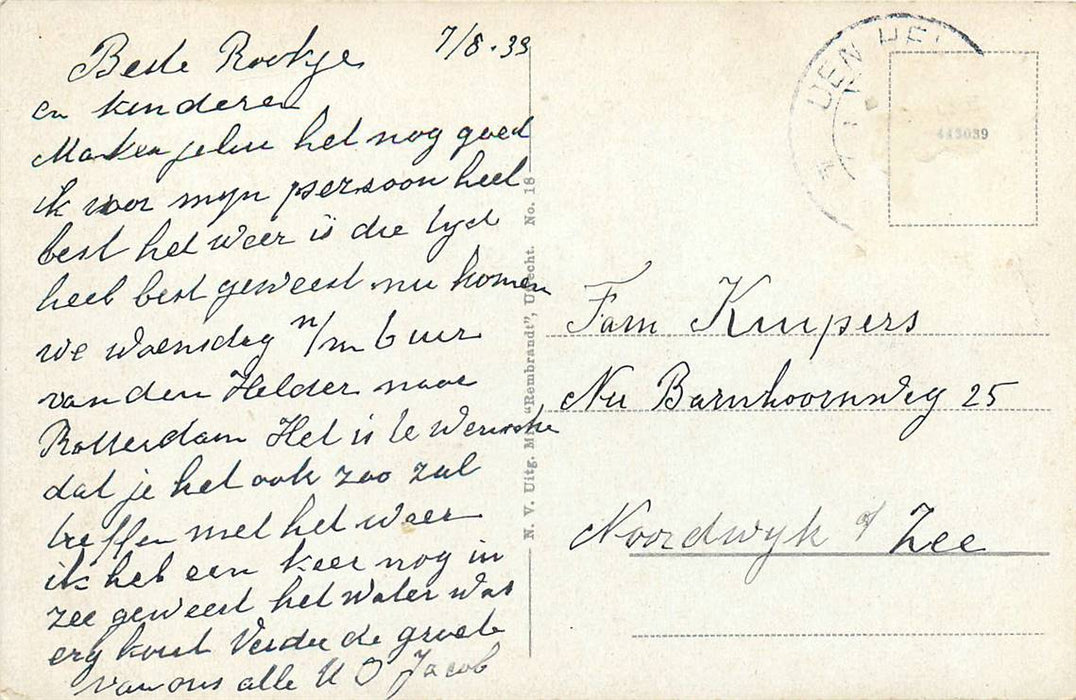 Beste Rookje 7/8.39
en kinderen
Maken jelui het nog goed
ik voor mijn persoon heel
best het weer is die tyd
heel best geweest nu komen
we Woensdag n/m 6 uur
van den Helder naar
Rotterdam Het is te Wensche
dat je het ook zoo zul
treffen met het weer
ik heb een keer nog in
zee geweest het water was
erg koud Verder de groete
van ons alle U O Jacob
N. V. Uitg. Mij "Rembrandt", Utrecht. No. 18
DEN HEL
443039
Fam Kuipers
Nu Barnhoornweg 25
Noordwyk a/ Zee